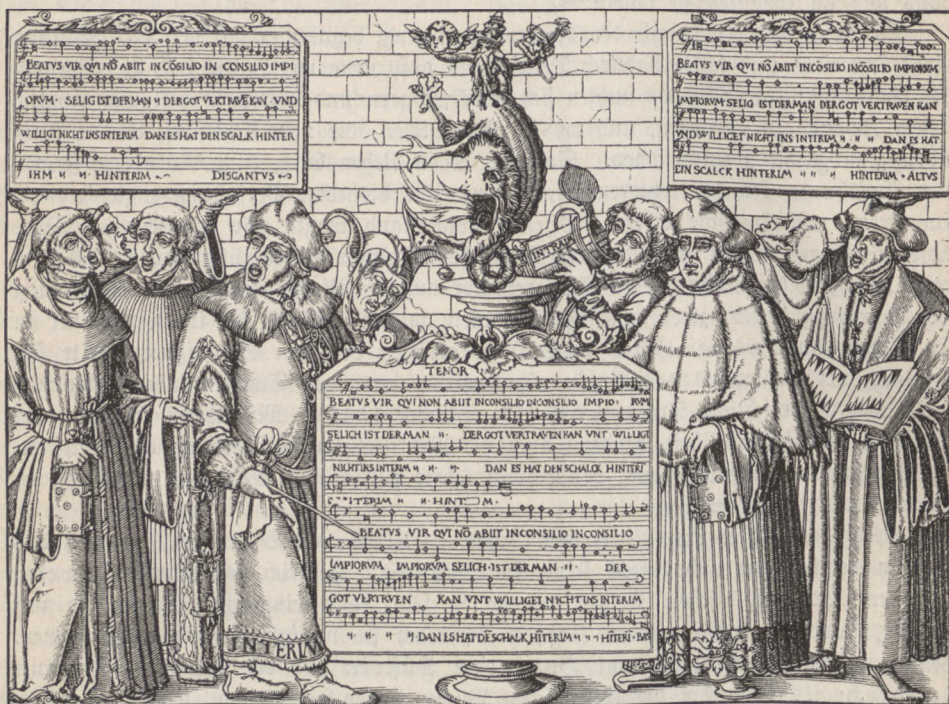 BEATVS VIR QVI NŌ ABIIT IN CŌSILIO IN CONSILIO IMPI
ORVM · SELIG IST DER MAN  DER GOT VERTRAVĒ KAN VND
WILLIGT NICHT INS INTERIM DAN ES HAT DEN SCALK HINTER
IHM HINTERIM DISCANTVS
BEATVS VIR QVI NŌ ABIIT IN CŌSILIO INCŌSILIO IMPIORVM
IMPIORVM SELIG IST DER MAN DER GOT VERTRAVEN KAN
VND WILLIGET NICHT INS INTERIM DAN ES HAT
EIN SCALCK HINTERIM HINTERIM · ALTVS
INTRAIN
TENOR
BEATVS VIR QVI NON ABIIT INCONSILIO INCONSILIO IMPIO · RVM
SELICH IST DER MAN DER GOT VERTRAVEN KAN VNT WILLIGT
NICHT INS INTERIM DAN ES HAT DEN SCHALCK HINTERI
ITERIM HINT M ·
BEATVS VIR QVI NŌ ABIIT INCONSILIO INCONSILIO
IMPIORVM IMPIORVM SELICH · IST DER MAN · DER
GOT VERTRVEN KAN VNT WILLIGET NICHT INS INTERIM
DAN ES HAT DĒ SCHALK HĪTERIM HĪTERI · BAS
INTERIM